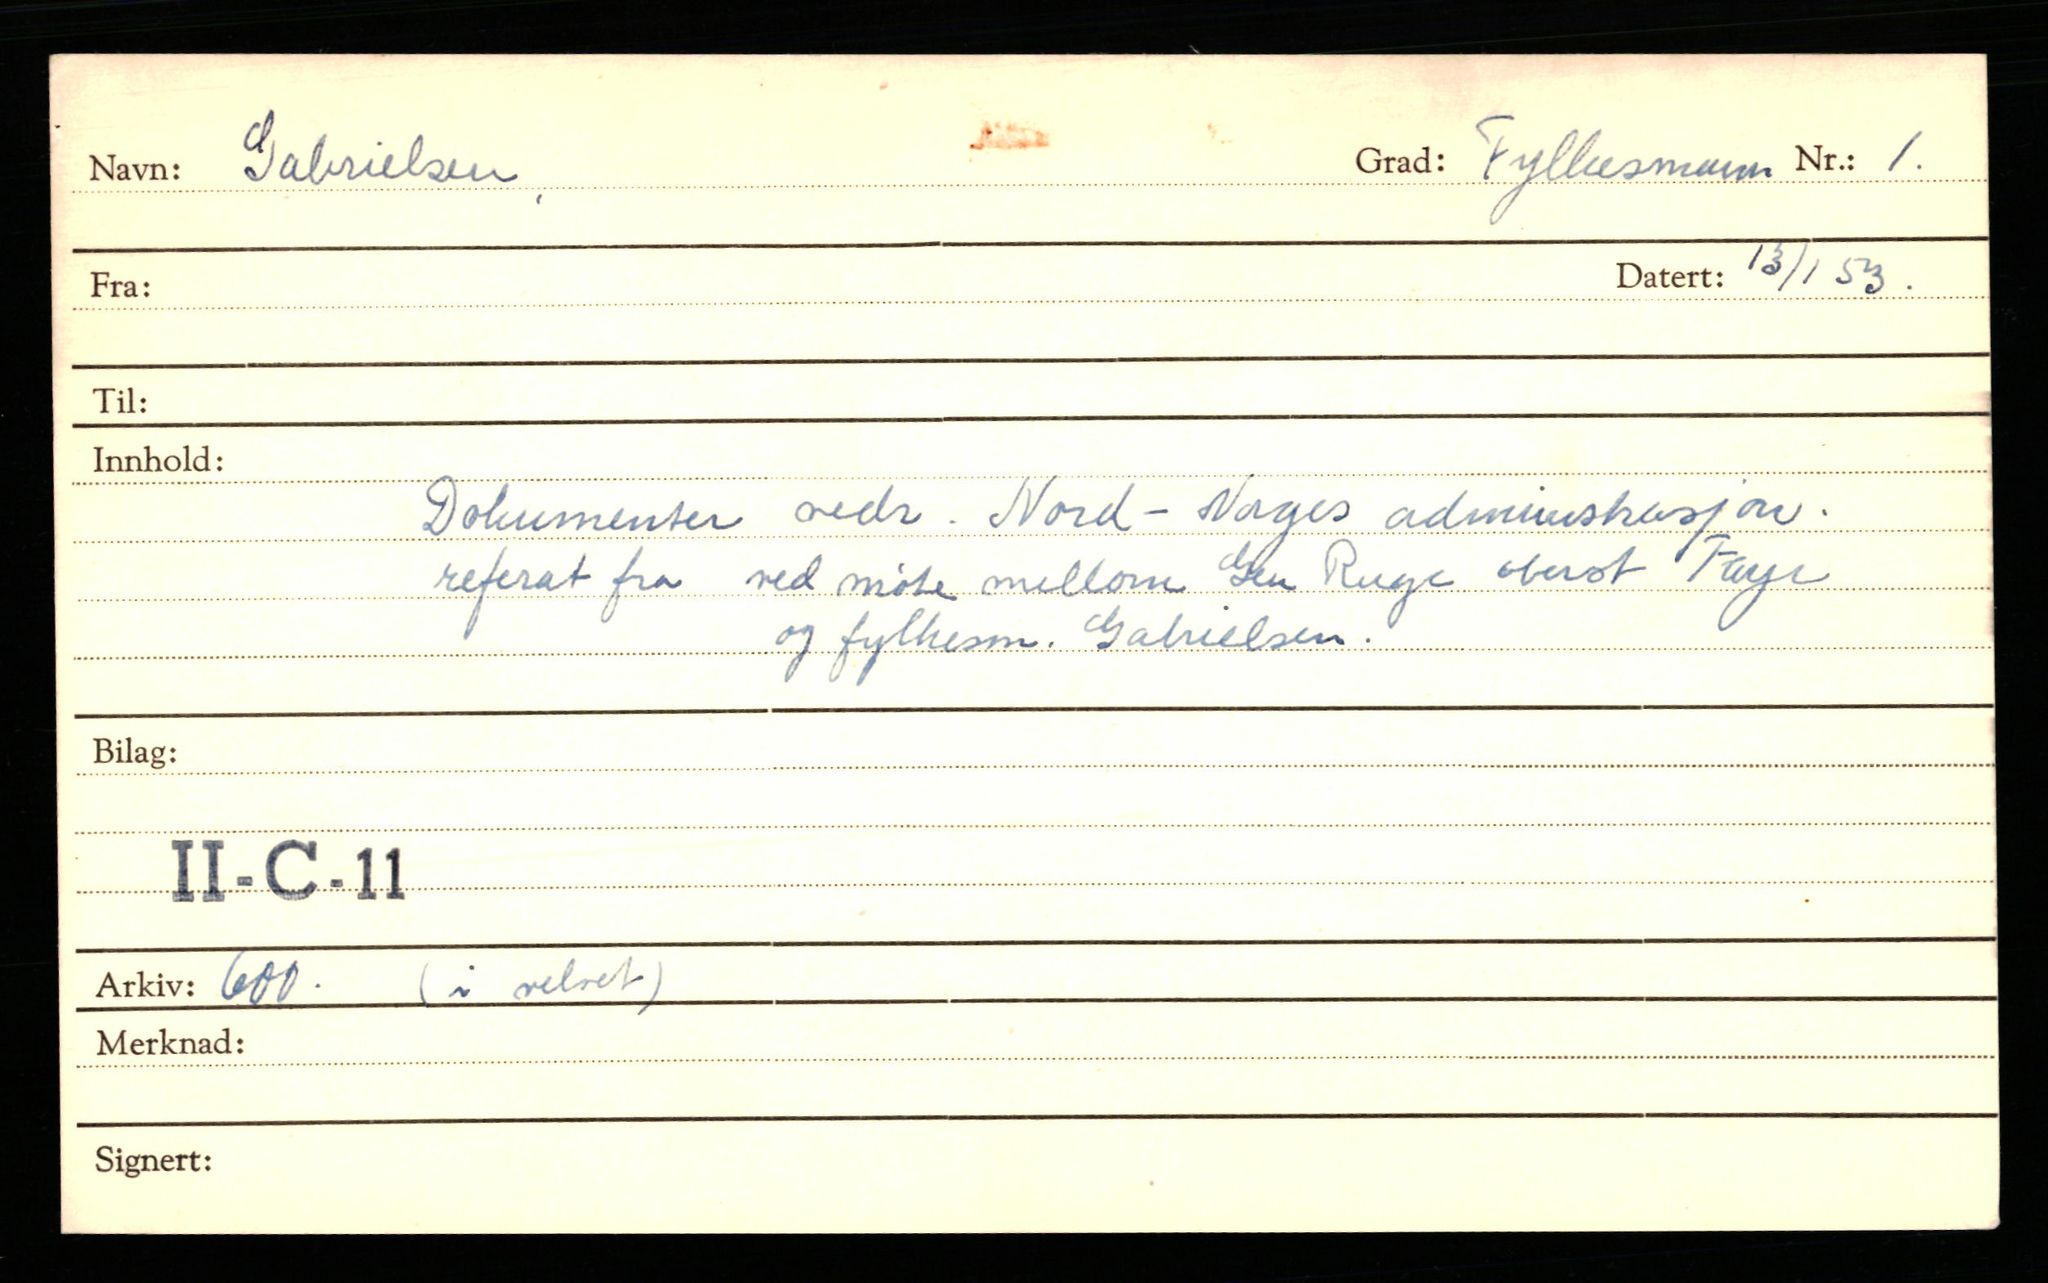 Navn: Gabrielsen, Grad: Fylkesmann Nr.: 1.
Fra: Datert: 13/1 53.
Til:
Innhold:
Dokumenter vedr. Nord-Norges administrasjon.
referat fra ved møte mellom Gen Ruge oberst Faye
og fylkesm. Gabrielsen.
Bilag:
II-C-11
Arkiv: 600. (i velvet)
Merknad:
Signert: